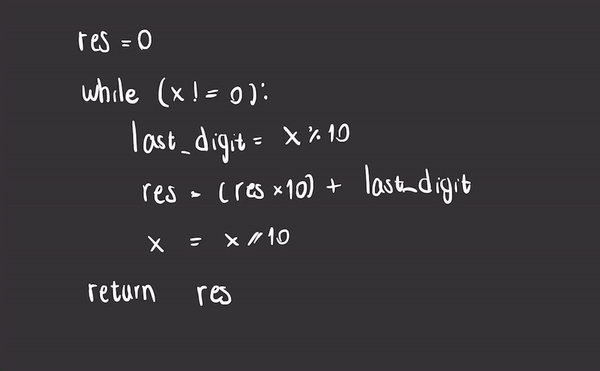 res = 0
while (x != 0):
last_digit = x % 10
res = (res × 10) + last_digit
x = x // 10
return res